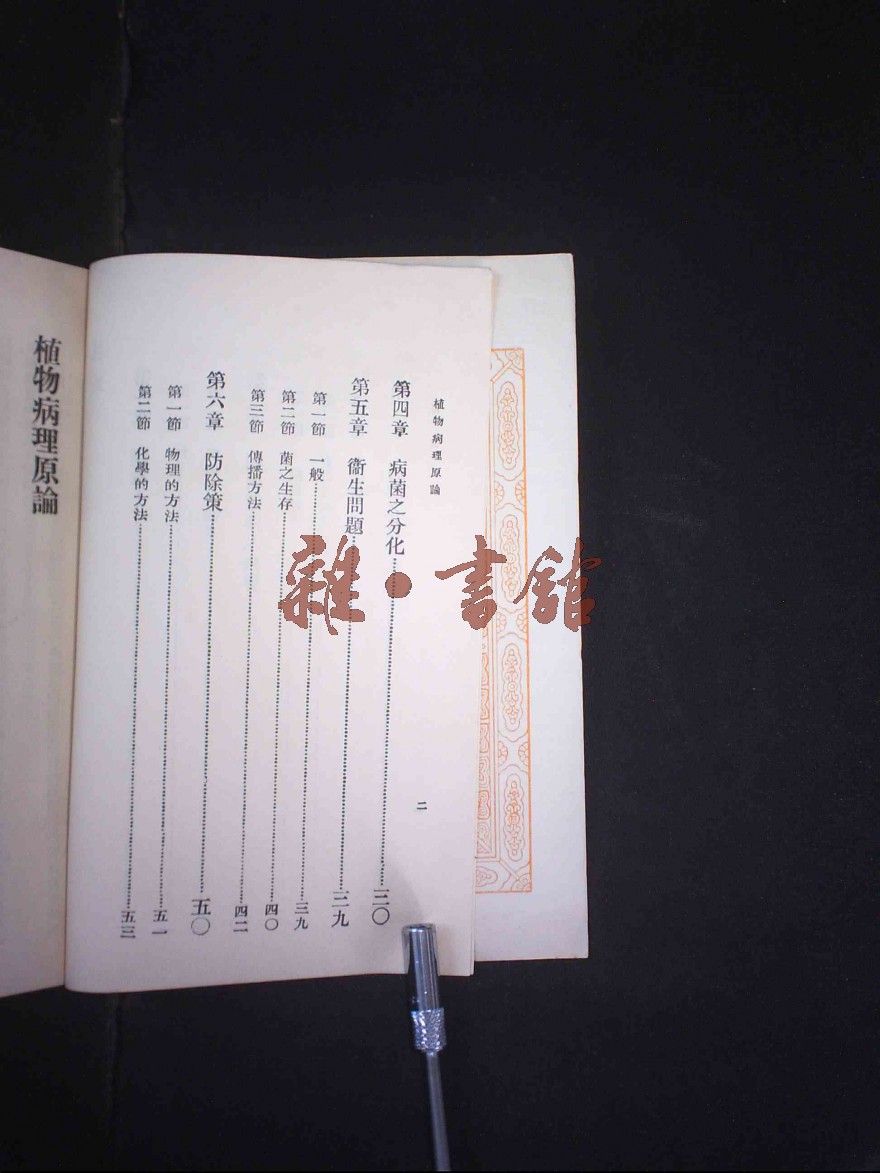 植物病理原論
二
第四章　病菌之分化……三〇
第五章　衞生問題……三九
第一節　一般……三九
第二節　菌之生存……四〇
第三節　傳播方法……四二
第六章　防除策……五〇
第一節　物理的方法……五一
第二節　化學的方法……五三
植物病理原論
雜·書館